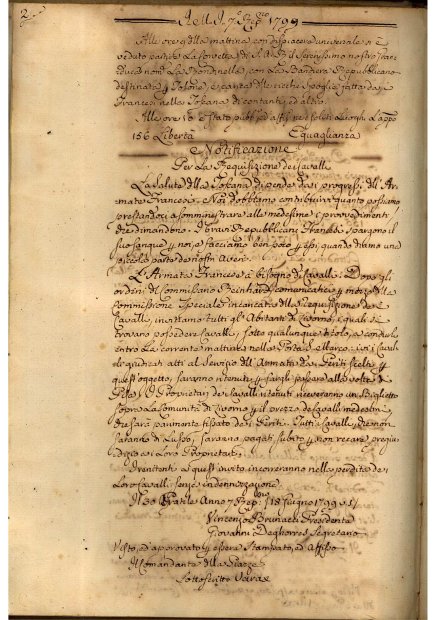 2
Alle ore della mattina con dispiacere universale si è
veduto partire la Corvetta di S. A. R. il Serenissimo nostro
nom. La Mondinella, con la Bandiera Repubblicano
destinata Tolone, e carica di ricchi spoglie fatte da
Francesi nella Toscana di contanti, ed altro.
Alle ore 10 è stato pubb. ed aff. ne' soliti Luoghi l'appo
156 Libertà Equaglianza
Notificazione
Per La Requisizione dei Cavalli
La Salute della Toscana dipende dai progressi dell'Ar
mata Francese. Noi dobbiamo contribuirvi quanto possiamo
prestandoci a somministrare alla medesima i provvedimenti
che dimandono. I bravi Repubblicani Francesi spargono il
suo sangue noi facciamo ben poco essi, quando diamo una
piccola parte dei nostri Averi.
L'Armata Francese à bisogno di Cavalli: Dopo gli
ordini del Commissario Reinhard, comunicatici mezzo della
Commissione Speciale incaricata della Requisizione dei
Cavalli, invitiamo tutti gli Abitanti di Livorno, i quali si
trovano possedere Cavalli, sotto qualunque titolo, a condurli
entro la corrente mattina nella Porta S. Marco. ivi i Caval
li giudicati atti al Servizio dell'Armata da' Periti scelti
quest'oggetto, saranno ritenuti e fargli passare alla volta di
Pisa, I Proprietarj dei Cavalli ritenuti riceveranno un Biglietto
sopra La Comunità di Livorno il prezzo dei Cavalli medesimi
che sarà paumente fissato dei Periti. Tutti i Cavalli, che non
saranno di Lusso, saranno pagati subito non recare pregiu
dizio ai Loro Proprietarj.
I renitenti a quest'invito incorreranno nella perdita dei
Loro Cavalli senza indennizzazione.
Il 30 Pratile Anno 7 Rep. 18 Giugno 1799
Vincenzo Brunacci Presidente
Giovanni Segretario
Visto, ed approvato essere Stampato, ed Affisso
Il Comandante della Piazza
Sottoscritto